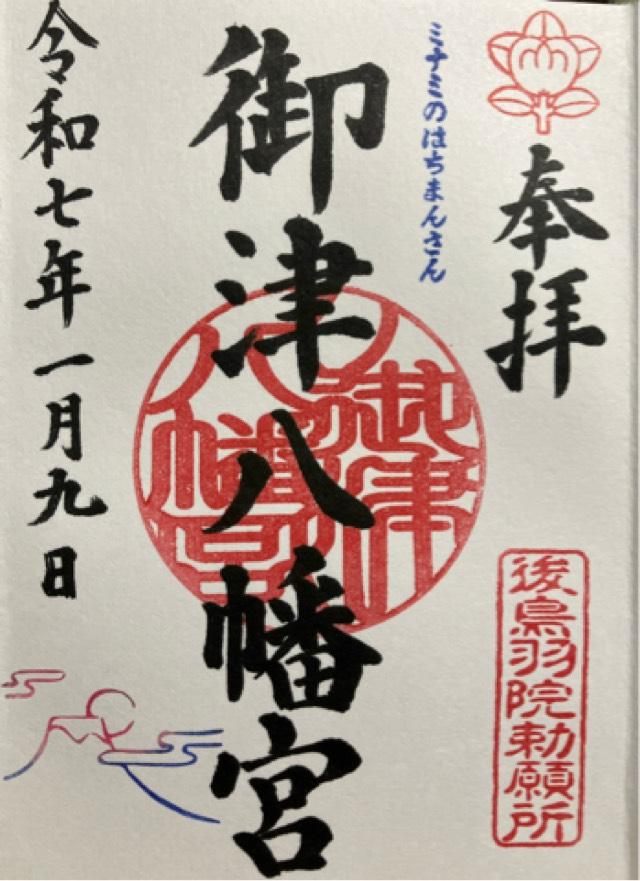 奉拝
後鳥羽院勅願所
ミナミのはちまんさん
御津八幡宮
御津八幡宮
令和七年一月九日